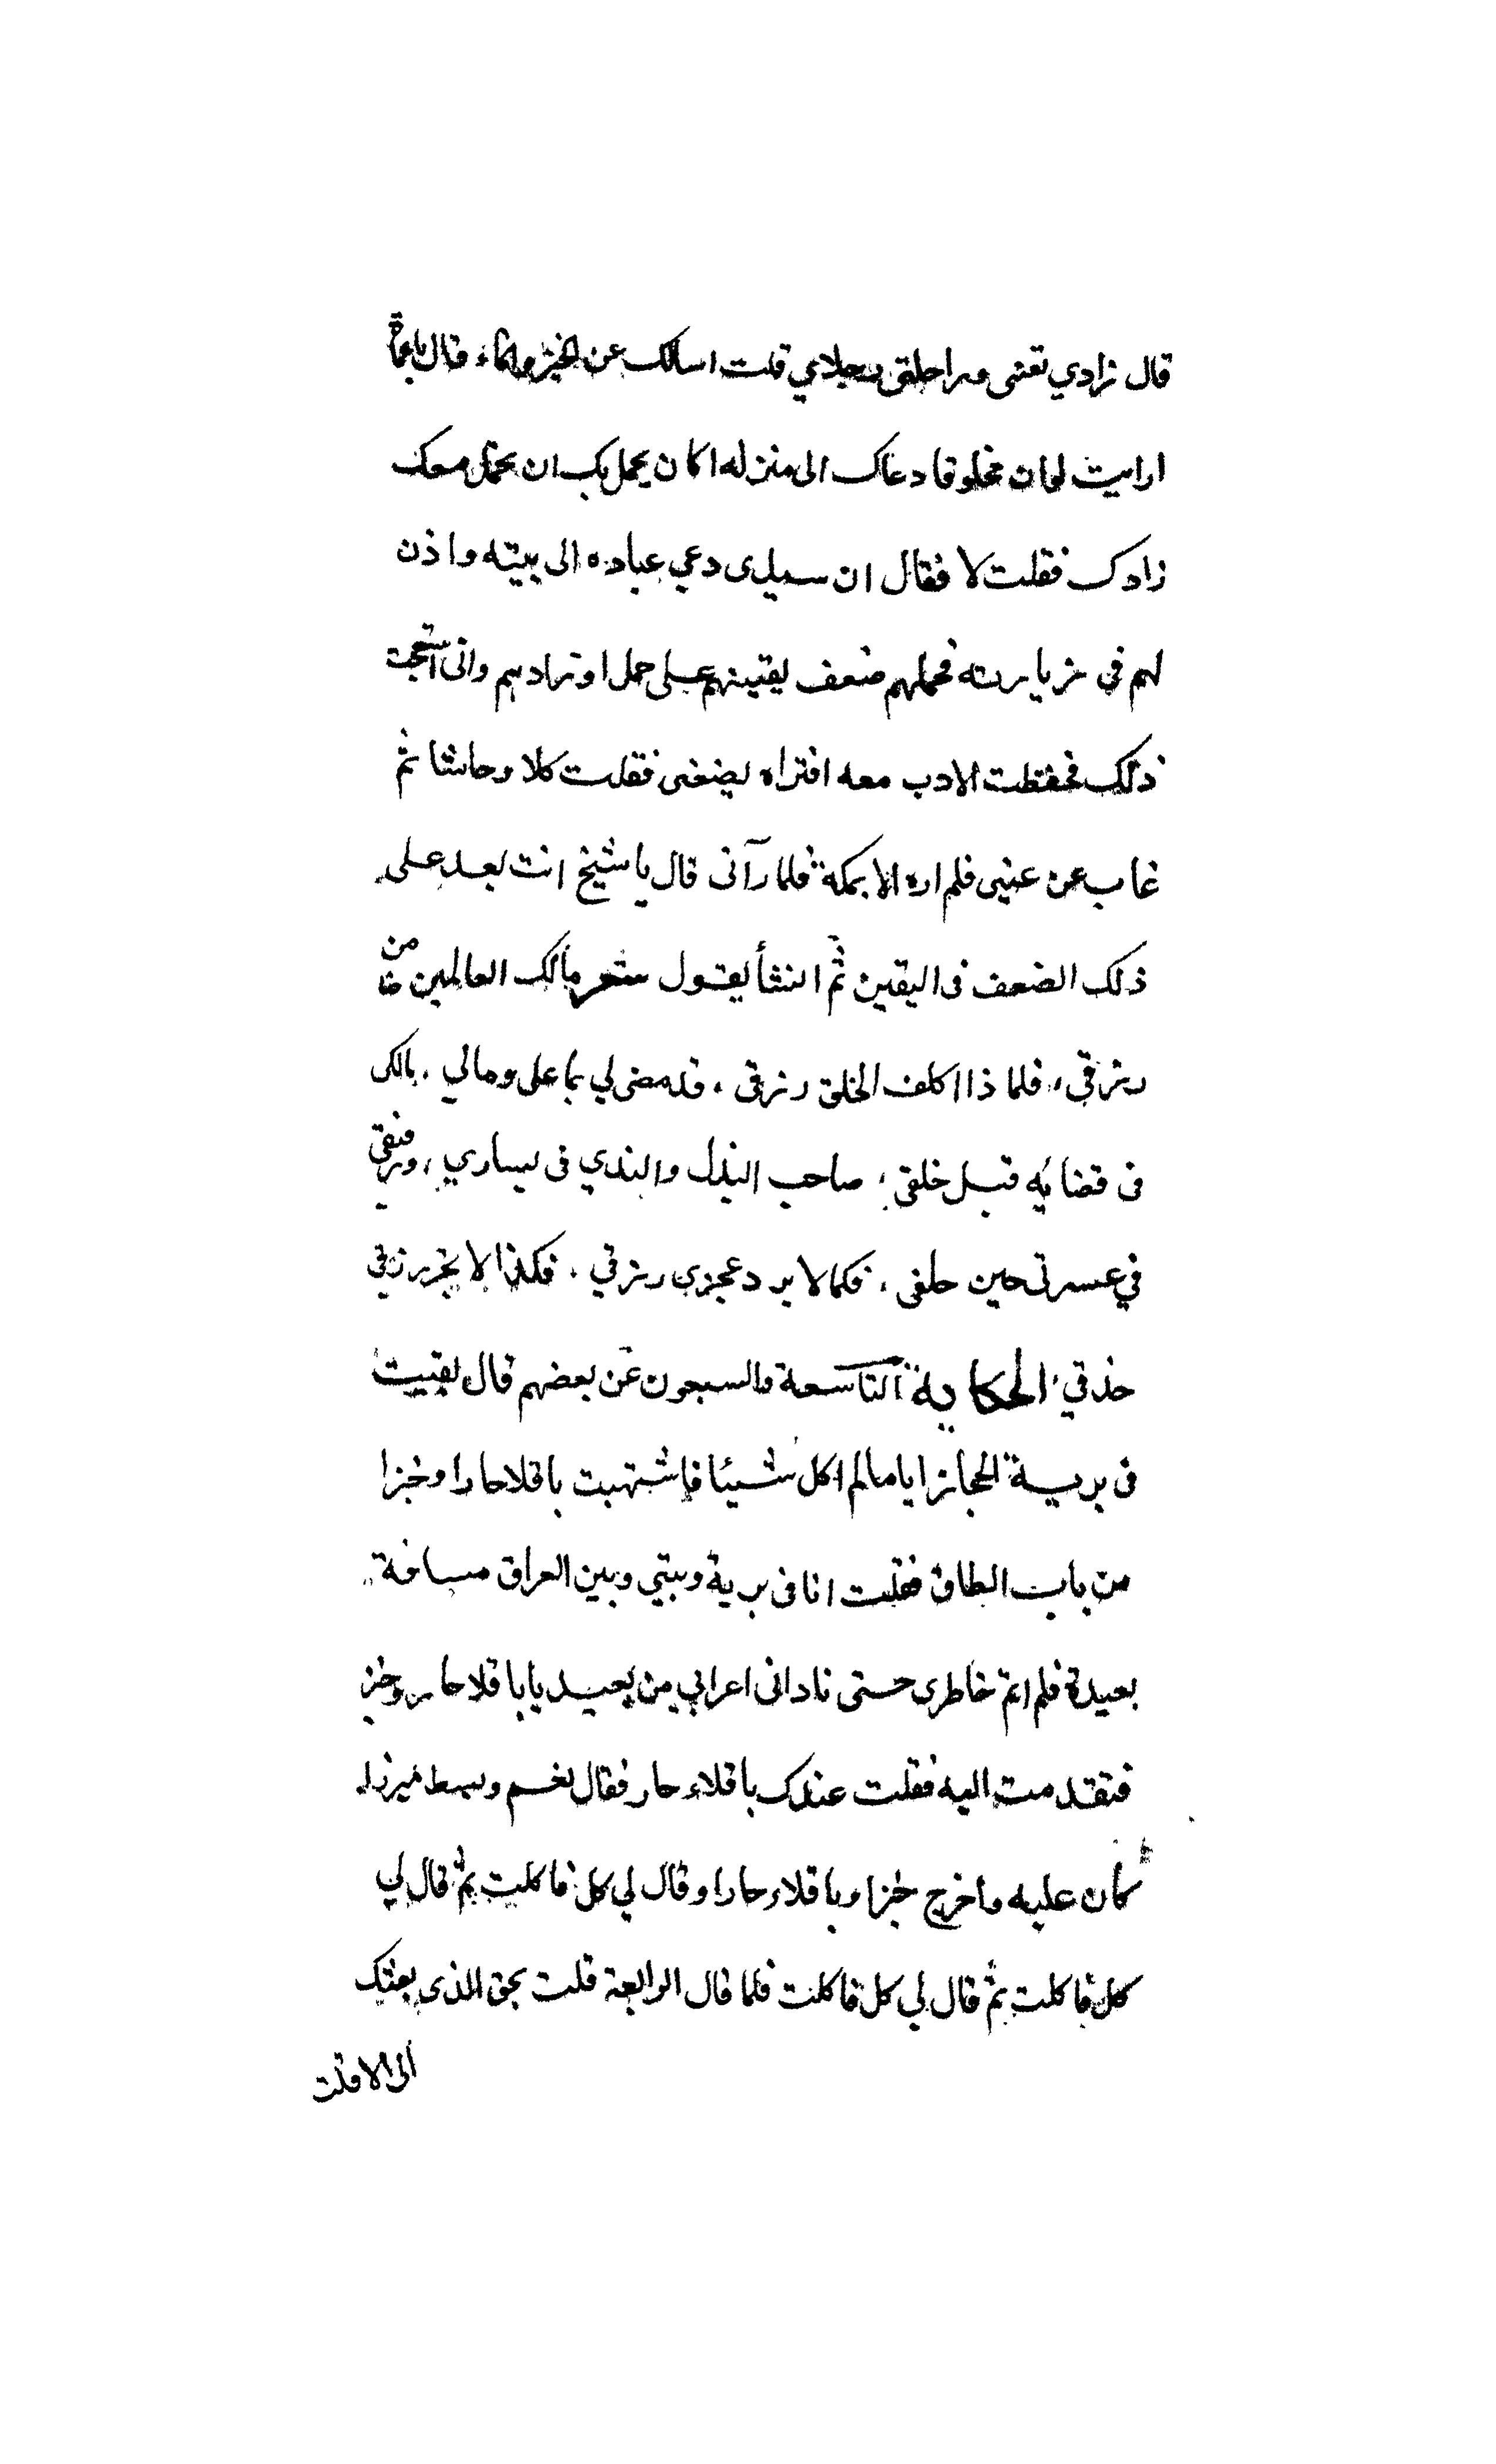 قال زادي تقنى وراحلتى رجلاى قلت اسالك عن الخبز والماء قال ياعماه
ارايت لوان مخلوقا دعاك الى منزله اكان يجمل بك ان تحمل معك
زادك فقلت لا فقال ان سيدى دعي عباده الى بيته واذن
لهم في زيارته فحملهم ضعف يقينهم على حمل ازوادهم وانى استحيت
ذلك فحفظت الادب معه افتراه يضيعنى فقلت كلا وحاشا ثم
غاب عن عينى فلم اره الا بمكة فلما رآنى قال يا شيخ انت بعد على
ذلك الضعف فى اليقين ثم انشأ يقول شعر مالك العالمين ضامن
رزقي، فلما ذا اكلف الخلق رزقى، قد مضى لي بما على ومالي، مالكى
فى قضايه قبل خلقى، صاحب البذل والندي فى يساري، ورفيقى
في عسرتى حين خلقى، فكما لا يرد عجزى رزقي، فكذا لا يجر رزقى
حذقي، الحكاية التاسعة والسبعون عن بعضهم قال بقيت
فى برية الحجاز اياما لم اكل شيئا فاشتهيت باقلا حارا وخبزا
من باب الطاق فقلت انا فى برية وبينى وبين العراق مسافة
بعيدة فلم اتم خاطرى حتى نادانى اعرابي من بعيد يا باقلا حار وخبز
فتقدمت اليه فقلت عندك باقلاء حار فقال نعم وبسط ميزرا
كان عليه واخرج خبزا وباقلاء حارا وقال لي كل فاكلت ثم قال لي
كل فاكلت ثم قال لي كل فاكلت فلما قال الرابعة قلت بحق الذى بعثك
الى الا قلت